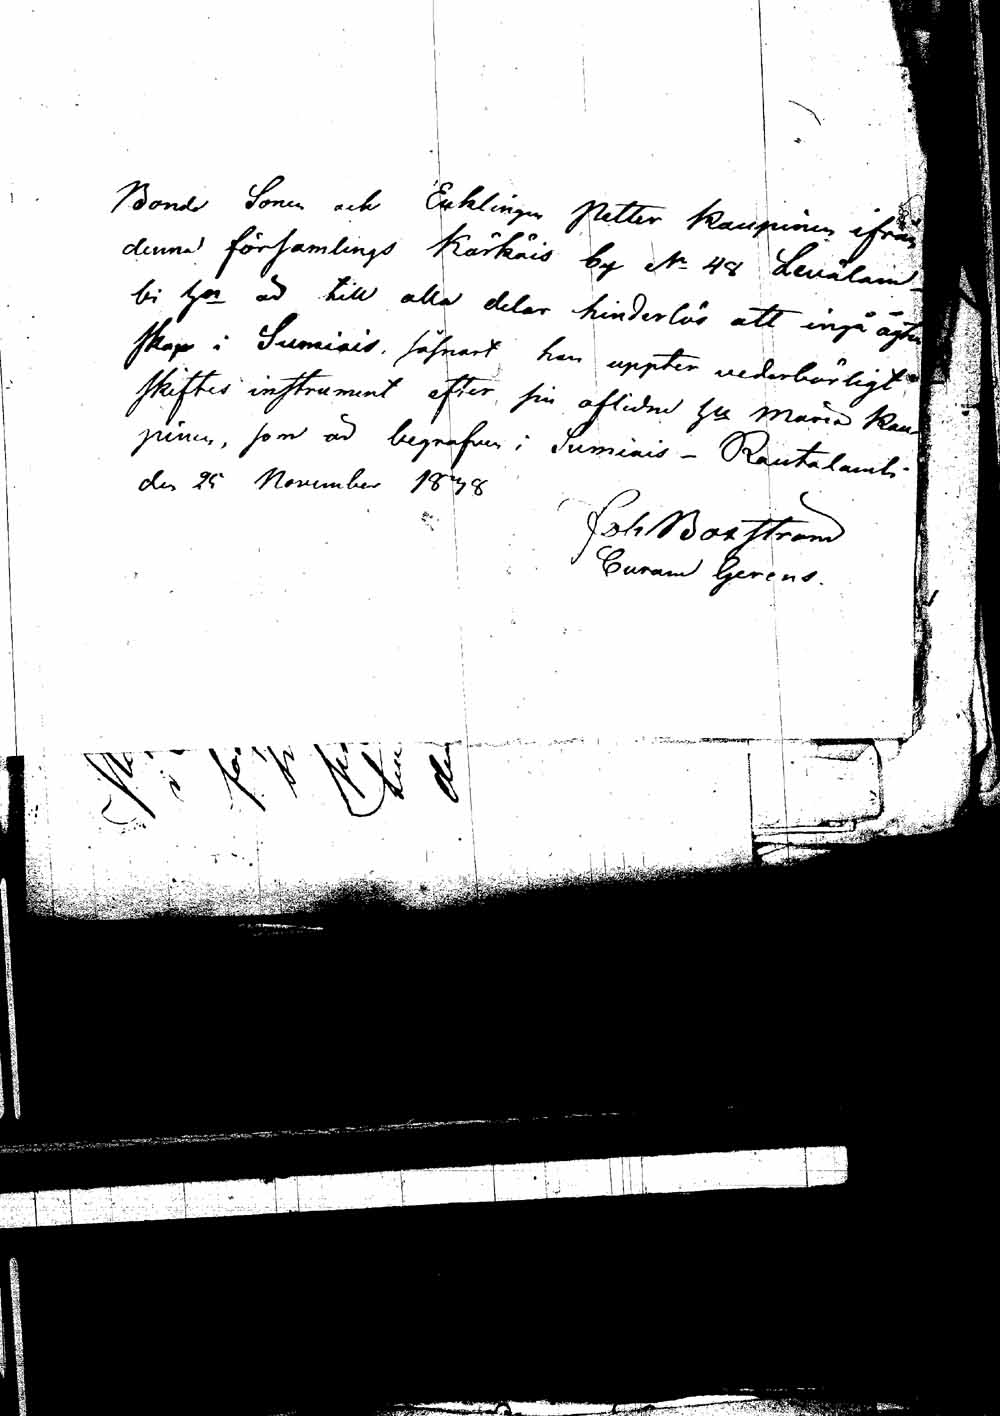 Bonde Sonen och Enklingen Petter Kaupinen ifrån
denna församlings Kärkäis by No 48 Leväläm-
bi hn äd till alla delar hinderlös att ingå ägten
skap i Sumiais, såsnart han uppter vederbörligt
skiftes instrument efter sin aflidne hu Maria Kau-
pinen, som äd begrafven i Sumiais – Rautalambi
den 25 November 1848
Joh Boxström
Curam Gerens.